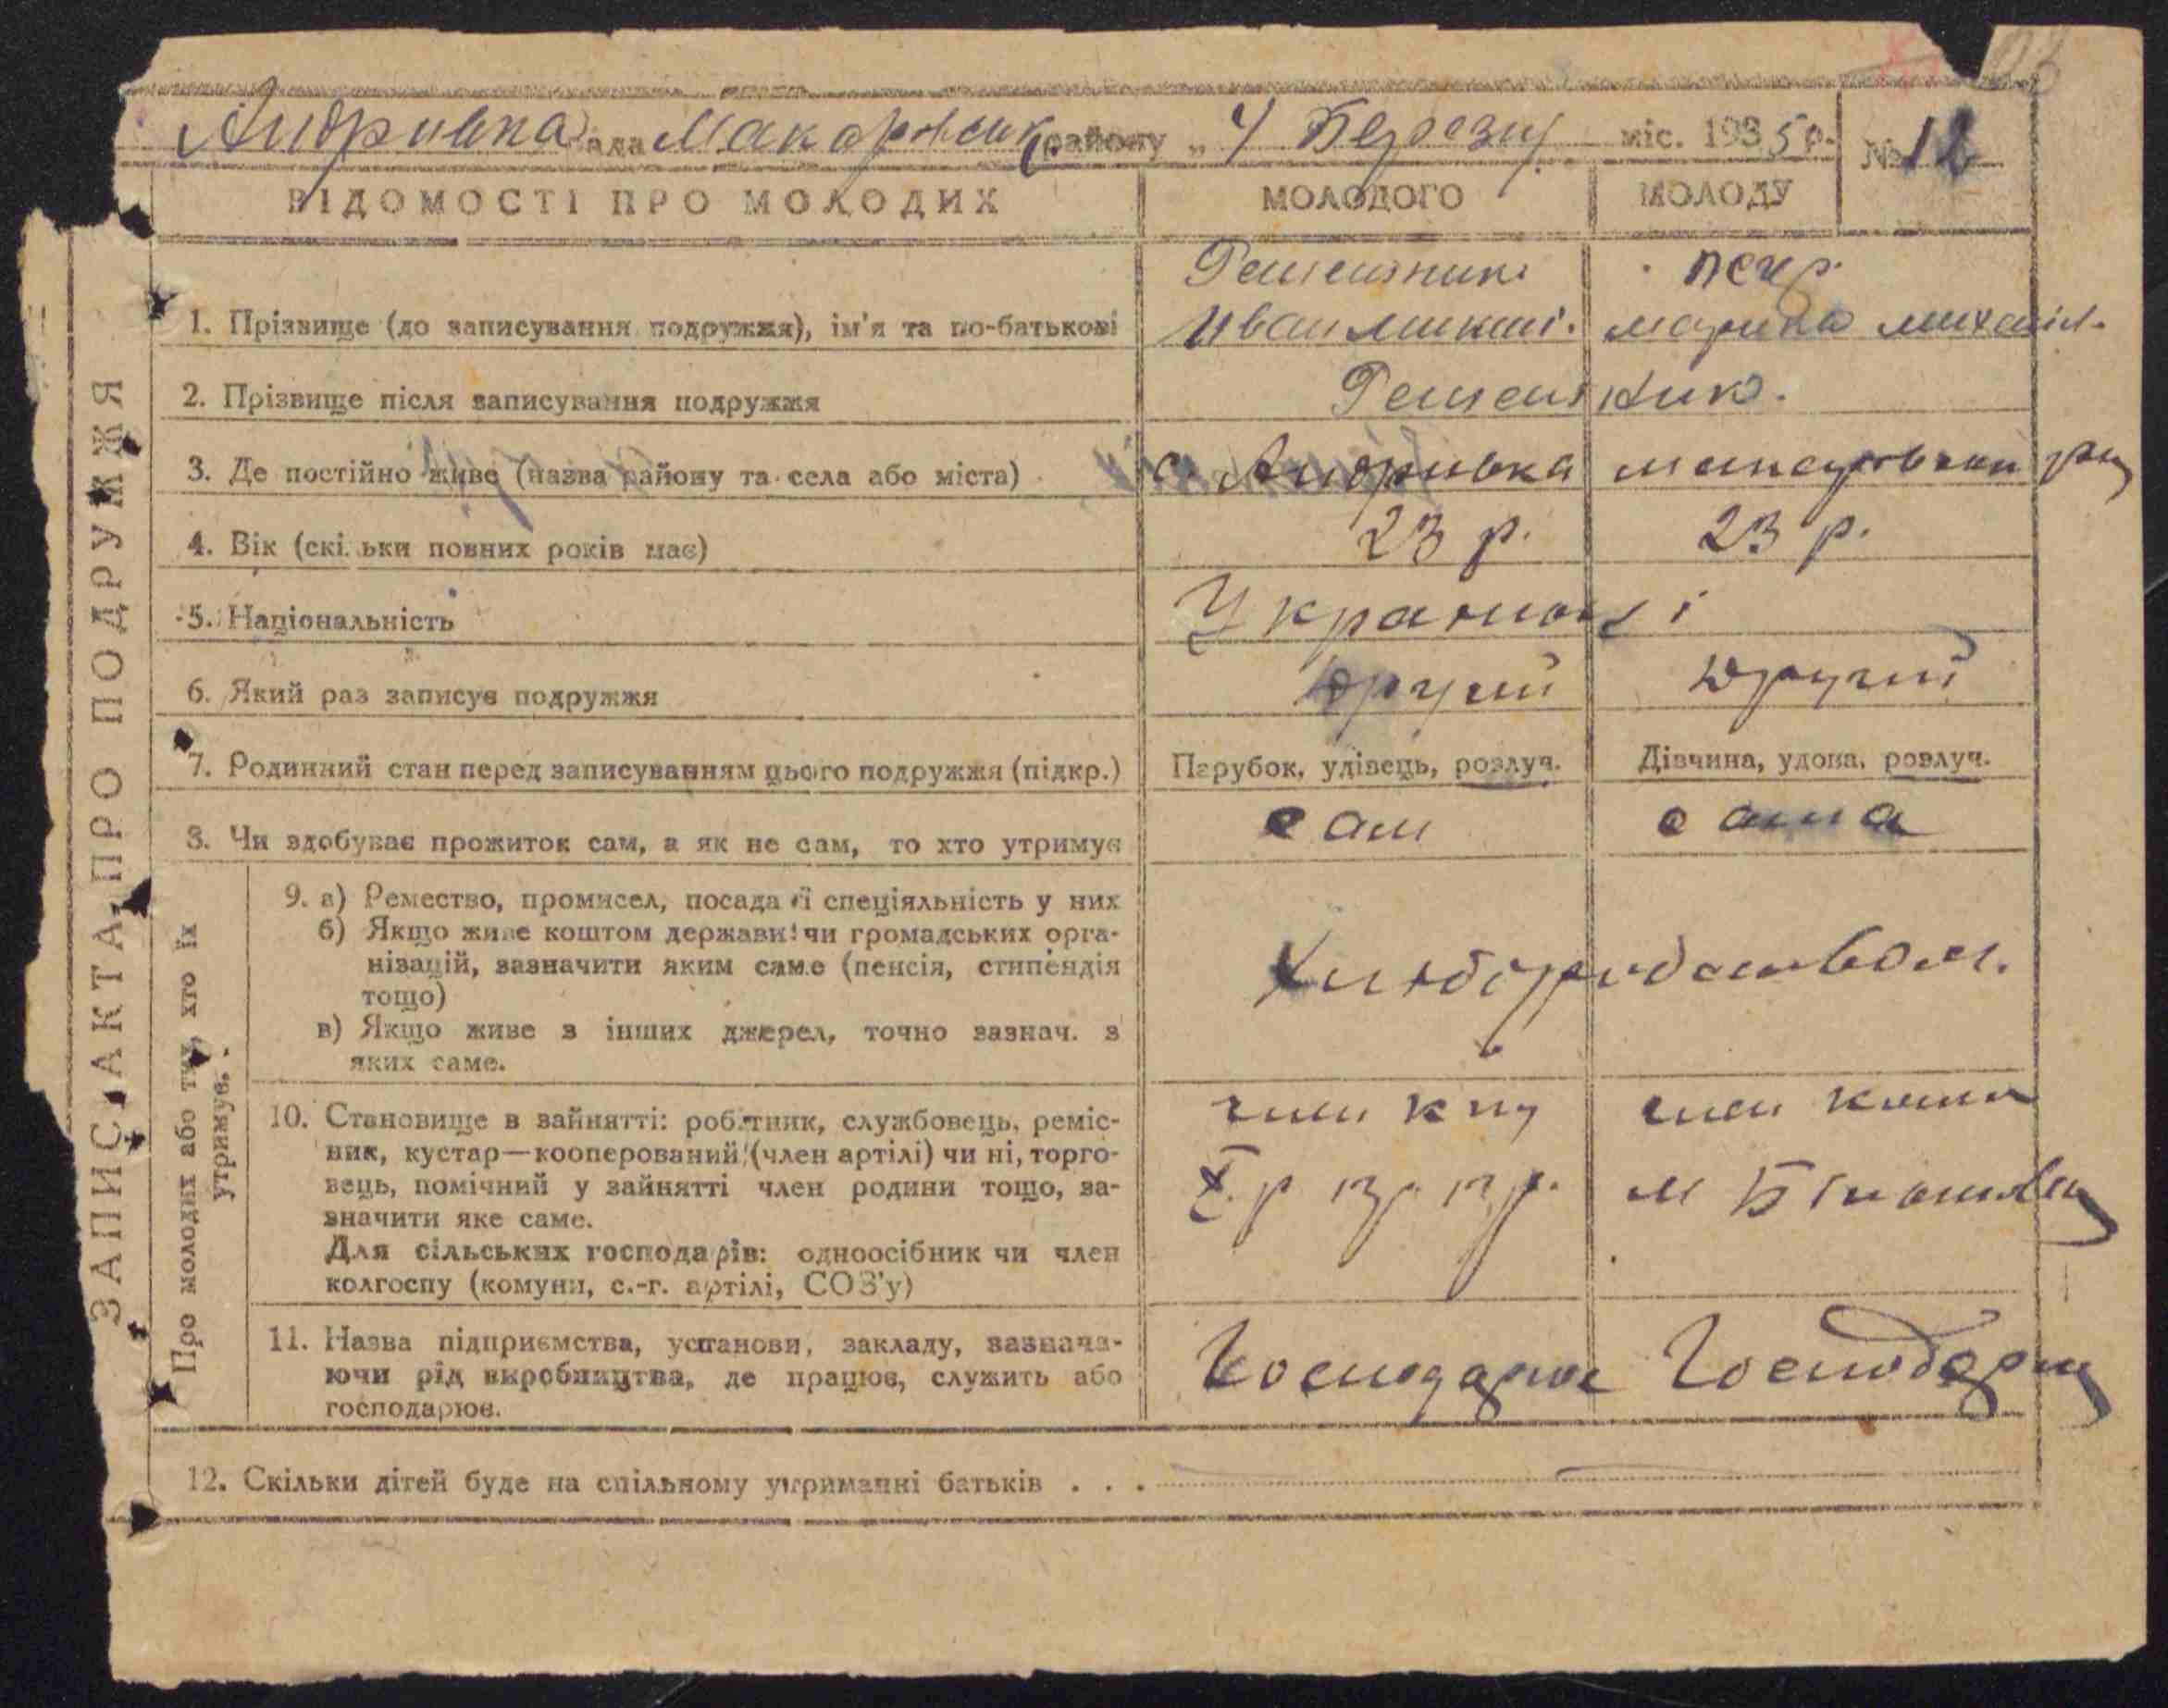 Андриивка рада Макаровськ. району „4 Березня міс. 1935 р. № 12
ВІДОМОСТІ ПРО МОЛОДИХ МОЛОДОГО МОЛОДУ
ЗАПИС АКТА ПРО ПОДРУЖЖЯ
1. Прізвище (до записування подружжя), ім'я та по-батькові
Решетник
Иван Микит.
Марина Михайл.
2. Прізвище після записування подружжя Решетник.
3. Де постійно живе (назва району та села або міста) с. Андриивка Макаровськ
4. Вік (скільки повних років має) 23 р. 23 р.
5. Національність Українці
6. Який раз записує подружжя другий другий
7. Родинний стан перед записуванням цього подружжя (підкр.) Парубок, удівець, розлуч. Дівчина, удова, розлуч.
8. Чи здобуває прожиток сам, а як не сам, то хто утримує сам сама
Про молодих або тих, хто їх утримує.
9. а) Ремество, промисел, посада й спеціяльність у них
б) Якщо живе коштом держави чи громадських орга-
нізацій, зазначити яким саме (пенсія, стипендія
тощо)
в) Якщо живе з інших джерел, точно зазнач. з
яких саме.
Хліборобством.
10. Становище в зайнятті: робітник, службовець, реміс-
ник, кустар—кооперований (член артілі) чи ні, торго-
вець, помічний у зайнятті член родини тощо, за-
значити яке саме.
Для сільських господарів: одноосібник чи член
колгоспу (комуни, с.-г. артілі, СОЗ'у)
член член
11. Назва підприємства, установи, закладу, зазнача-
ючи рід виробництва, де працює, служить або
господарює.
Господарює Господарює
12. Скільки дітей буде на спільному утриманні батьків . . . —